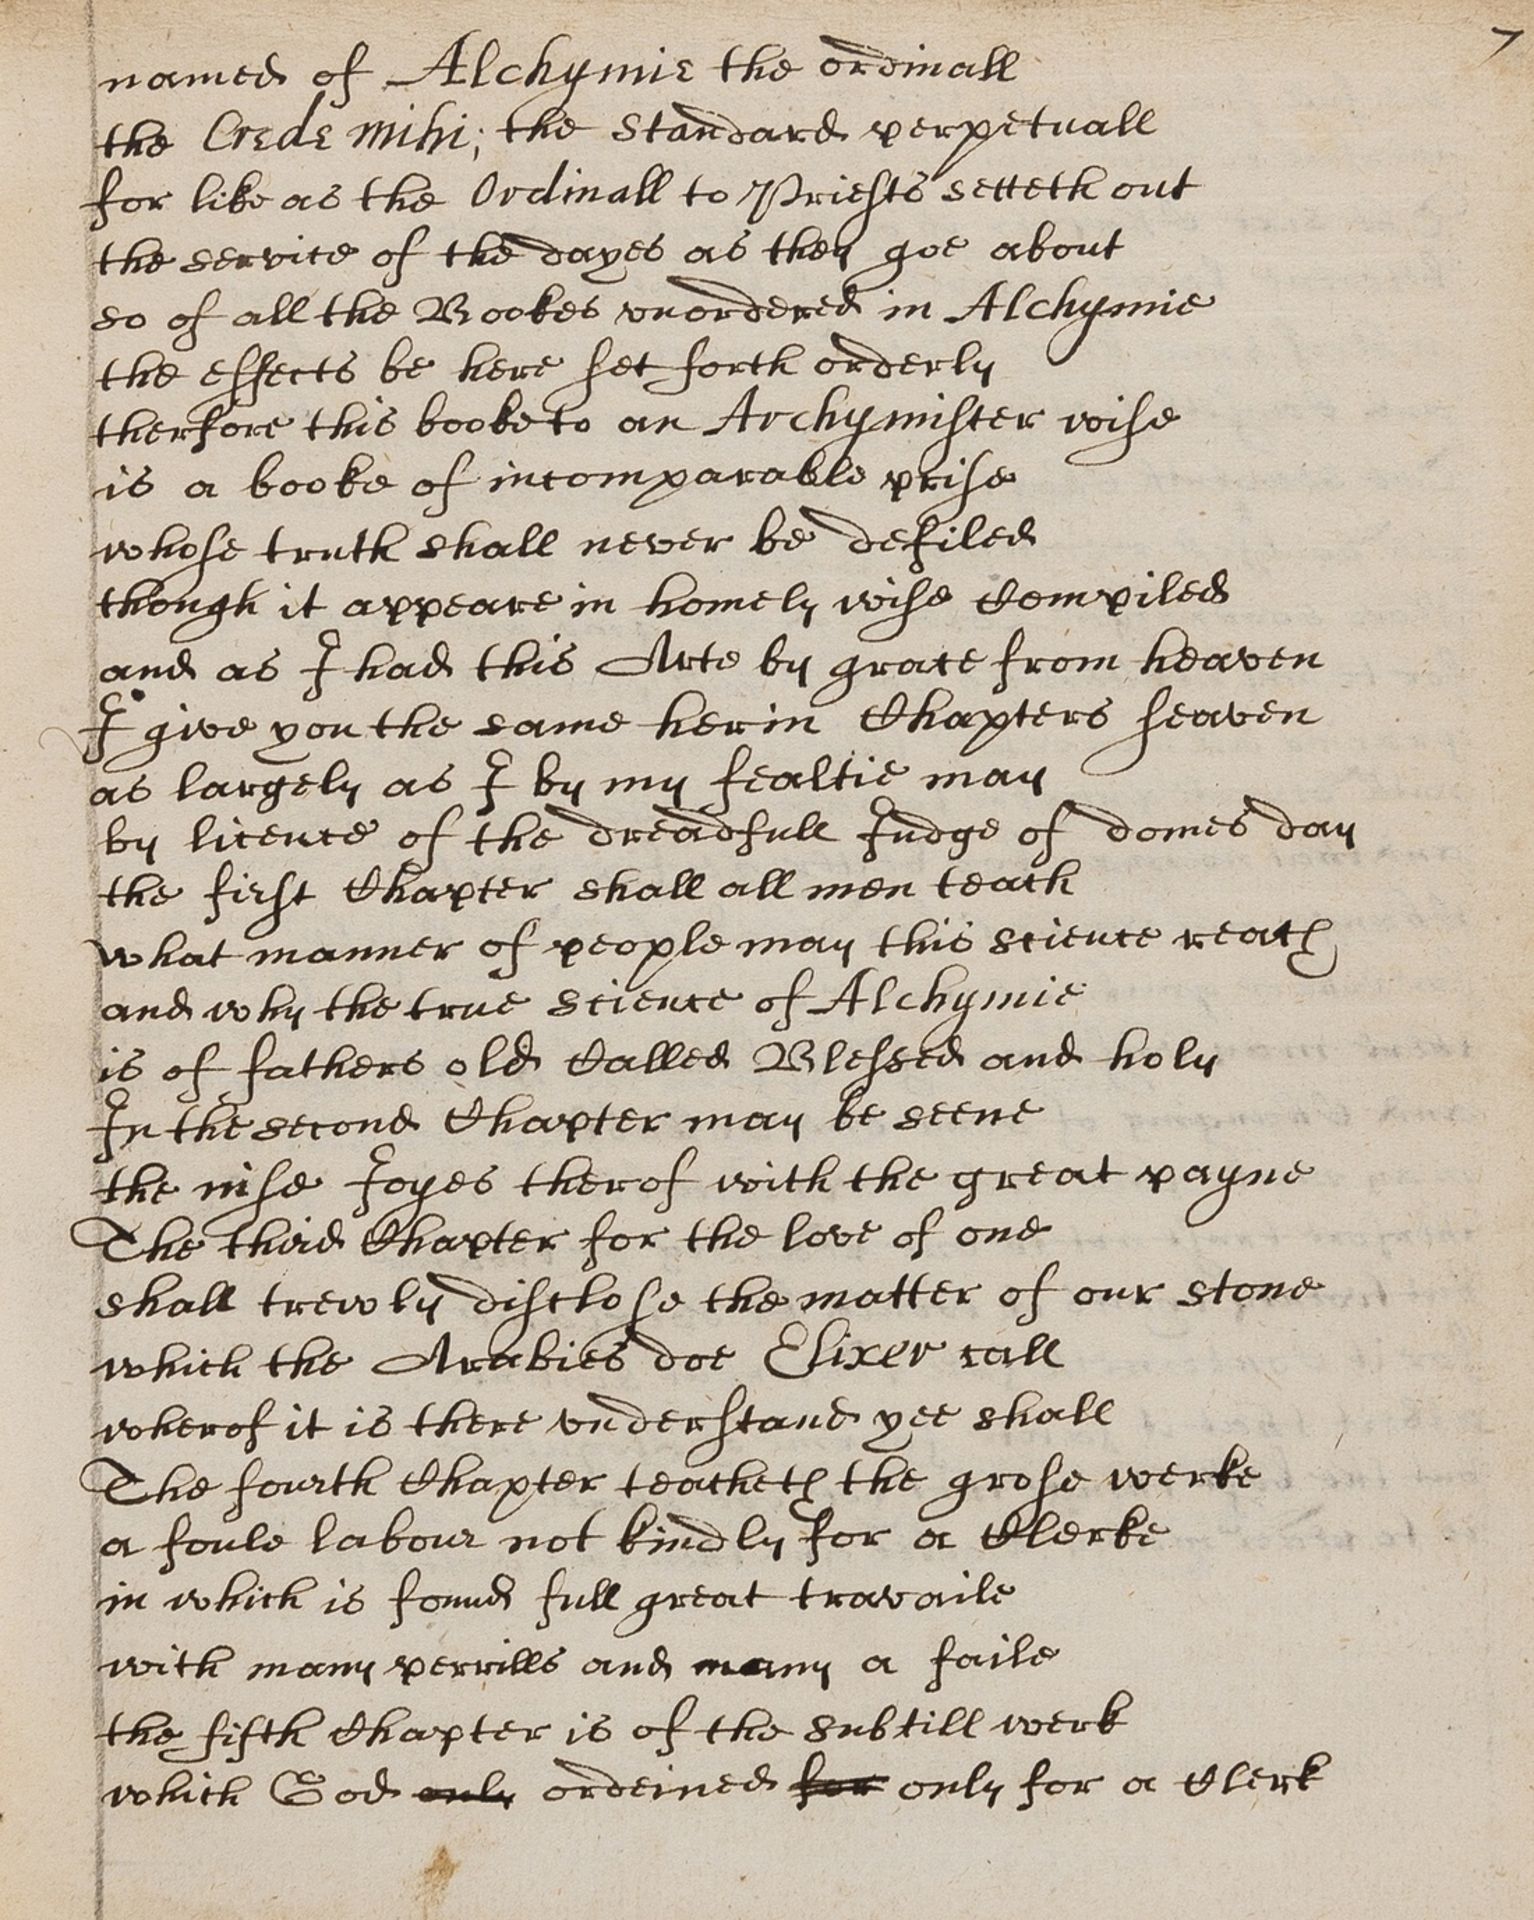 7
named of Alchymie the ordinall
the Crede mihi; the standard perpetuall
for like as the Ordinall to Priests setteth out
the service of the dayes as they goe about
so of all the Bookes vnordered in Alchymie
the effects be here set forth orderly
therfore this booke to an Archymister wise
is a booke of incomparable prise
whose truth shall never be defiled
though it appeare in homely wise Compiled
and as I had this Arte by grace from heaven
I give you the same herin Chapters seaven
as largely as I by my fealtie may
by licence of the dreadfull Judge of domes day
the first Chapter shall all men teach
what manner of people may this science reach
and why the true science of Alchymie
is of fathers old Called Blessed and holy
In the second Chapter may be seene
the nise Joyes therof with the great payne
The third Chapter for the love of one
shall trewly disclose the matter of our stone
which the Arabies doe Elixer call
wherof it is there vnderstand yee shall
The fourth Chapter teacheth the grose werke
a foule labour not kindly for a Clerke
in which is found full great travaile
with many perrills and many a faile
the fifth Chapter is of the subtill werk
which God only ordeined for only for a Clerk